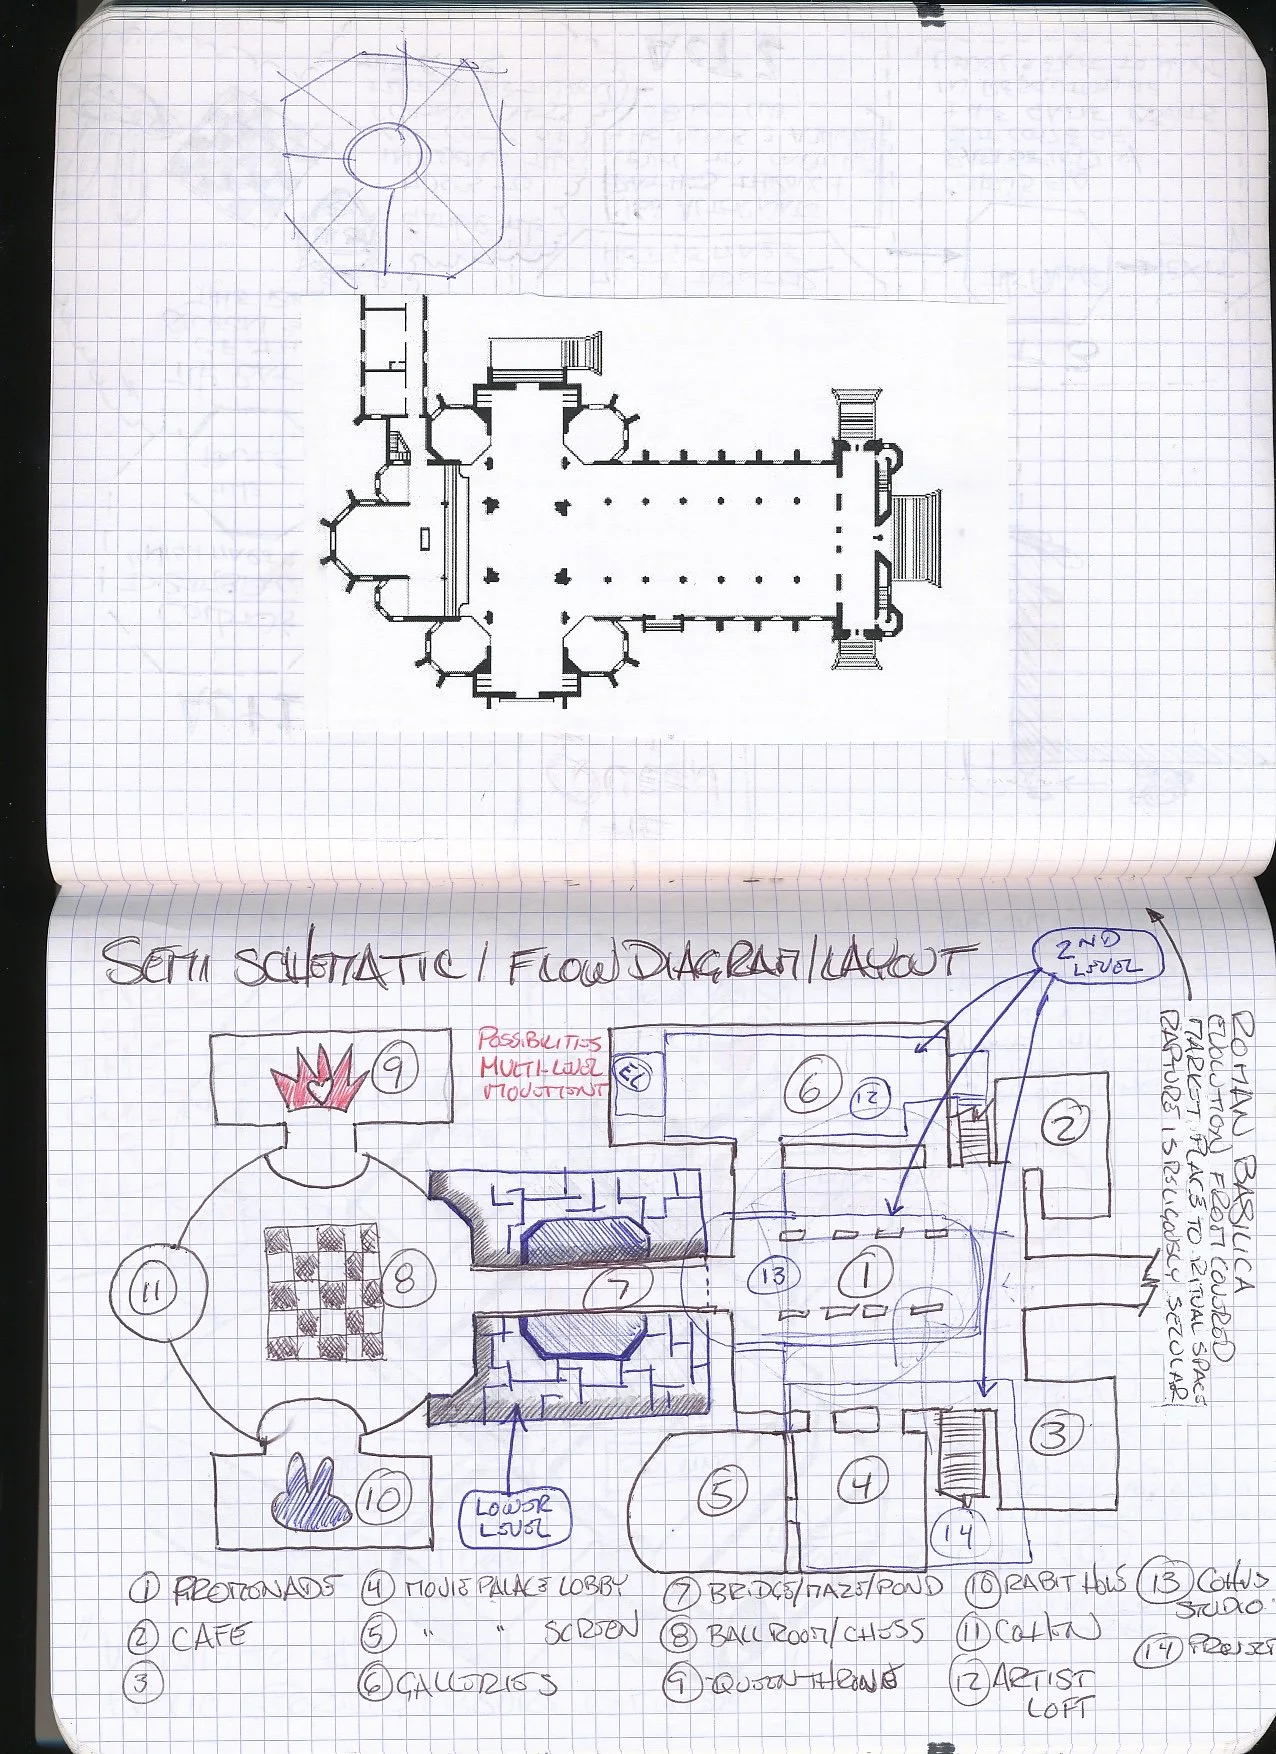 SEMI SCHEMATIC / FLOW DIAGRAM / LAYOUT
2ND
LEVEL
POSSIBILITIES
MULTI-LEVEL
MOVEMENT
ROMAN BASILICA
EVOLUTION FROM COVERED
MARKET PLACE TO RITUAL SPACE
RAPTURE IS RELIGIOUSLY SECULAR
9
EL
6
12
2
11
8
7
13
1
10
5
4
3
14
LOWER
LEVEL
1 PROMENADE
2 CAFE
3
4 MOVIE PALACE LOBBY
5 " " SCREEN
6 GALLERIES
7 BRIDGE/MAZE/POND
8 BALLROOM/CHESS
9 QUEEN THRONE
10 RABIT HOLE
11
12 ARTIST
LOFT
13
STUDIO
14 PROJECT